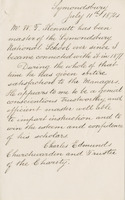 Symondsbury
July 11th 18
Mr W. G. Stennett has been
Master of the Symondsbury
National School ever since I
became connected with it in 1877
During the whole of that
time he has given entire
satisfaction to the Managers.
He appears to me to be a good
conscientious trustworthy and
efficient master with
to impart instruction and to
win the esteem and confidence
of his scholars
Charles Edmunds
Churchwarden and Trustee
of the Charity.